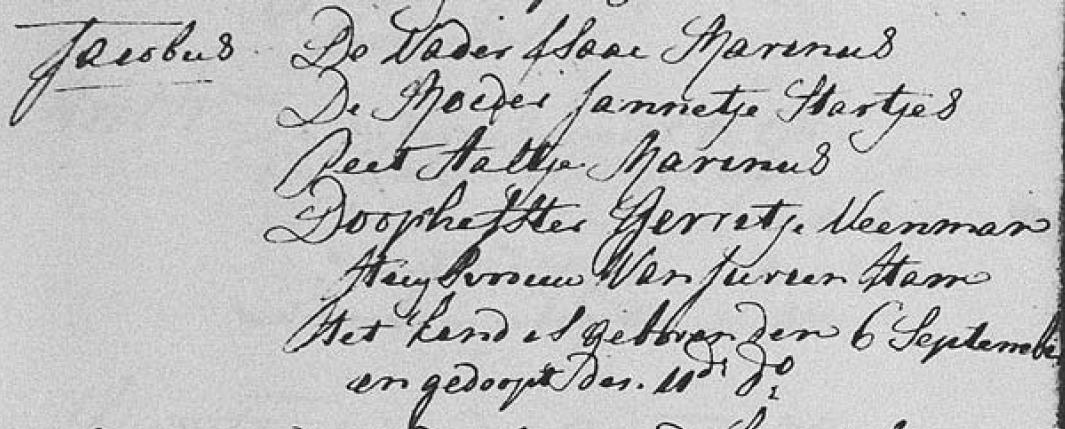 Jacobus De Vader Isaac Marinus
De Moeder Jannetje Hartjes
Peet Aaltje Marinus
Doophefster Gerretje Veenman
Huysvrouw Van Jurien Stam
Het kend is geboren den 6 September
en gedoopt den 11de do